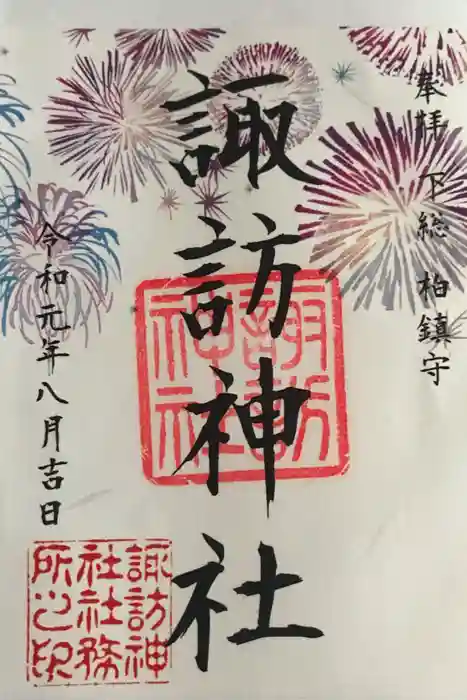 奉拝 下総 柏鎮守
諏訪神社
令和元年八月吉日
諏訪
神社
諏訪神
社社務
所之印